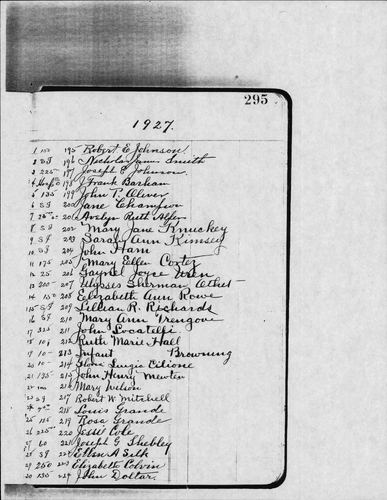 295
1927.
1 150 195 Robert E Johnson
196 Nicholas James Smith
3 225 197 Joseph E Johnson
198 J Frank Barhan
5 135 199 John P. Oliver
200 Jane Champion
7 25 201 Avelyn Ruth
8 202 Mary Jane Knuckey
9 203 Sarah Ann Kimsey
10 204 John Ham
11 175 205 Mary Ellen Coster
12 25 206 Gaynel Joyce Wren
13 200 207 Ulysses Sherman
14 150 208 Elizabeth Ann Rowe
209 Lillian R. Richards
16 210 Mary Ann Trengove
17 225 211 John Locatelli
18 106 212 Ruth Marie Hall
19 10 213 Infant Browning
20 10 214 Luigia Cilione
21 125 215 John Henry Mewten
22 216 Mary Wilson
23 217 Robert W Mitchell
218 Louis Grande
25 115 219 Rosa Grande
26 225 220 Jesse Cole
27 60 221 Joseph G Shebley
28 222 Ellen A Silk
29 250 223 Elizabeth Colvin
30 135 224 John Dollar.